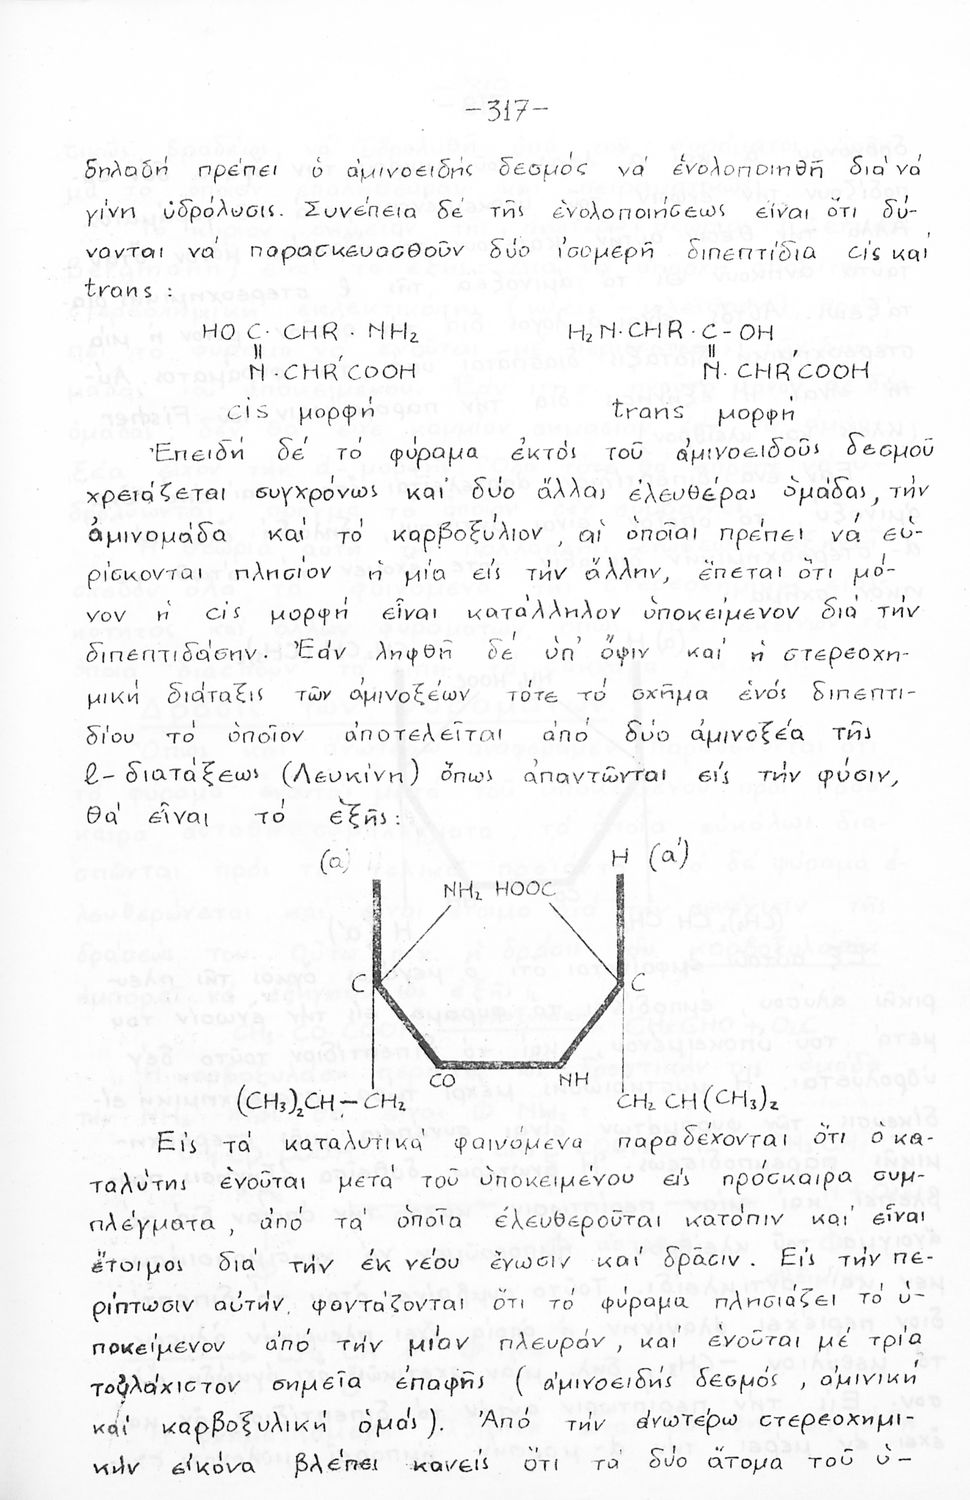 -317-
δηλαδή πρέπει ὁ ἀμινοειδής δεσμός νά ἐνολοποιηθῆ διά νά
γίνη ὑδρόλυσις. Συνέπεια δέ τῆς ἐνολοποιήσεως εἶναι ὅτι δύ-
νανται νά παρασκευασθοῦν δύο ἰσομερῆ διπεπτίδια cis καί
trans :
HO C · CHR · NH₂ H₂N·CHR·C-OH
|| ||
N·CHR´COOH N·CHR´COOH
cis μορφή trans μορφή
Ἐπειδή δέ τό φύραμα ἐκτός τοῦ ἀμινοειδοῦς δεσμοῦ
χρειάζεται συγχρόνως καί δύο ἄλλας ἐλευθέρας ὁμάδας, τήν
ἀμινομάδα καί τό καρβοξύλιον, αἱ ὁποῖαι πρέπει νά εὑ-
ρίσκονται πλησίον ἡ μία εἰς τήν ἄλλην, ἕπεται ὅτι μό-
νον ἡ cis μορφή εἶναι κατάλληλον ὑποκείμενον διά τήν
διπεπτιδάσην. Ἐάν ληφθῆ δέ ὑπ' ὄψιν καί ἡ στερεοχη-
μική διάταξις τῶν ἀμινοξέων τότε τό σχῆμα ἑνός διπεπτι-
δίου τό ὁποῖον ἀποτελεῖται ἀπό δύο ἀμινοξέα τῆς
l-διατάξεως (Λευκίνη) ὅπως ἀπαντῶνται εἰς τήν φύσιν,
θά εἶναι τό ἑξῆς:
(α) H (α')
NH₂ HOOC
C C
CO NH
(CH₃)₂CH-CH₂ CH₂ CH(CH₃)₂
Εἰς τά καταλυτικά φαινόμενα παραδέχονται ὅτι ὁ κα-
ταλύτης ἑνοῦται μετά τοῦ ὑποκειμένου εἰς πρόσκαιρα συμ-
πλέγματα, ἀπό τά ὁποῖα ἐλευθεροῦται κατόπιν καί εἶναι
ἕτοιμος διά τήν ἐκ νέου ἕνωσιν καί δρᾶσιν. Εἰς τήν πε-
ρίπτωσιν αὐτήν, φαντάζονται ὅτι τό φύραμα πλησιάζει τό ὑ-
ποκείμενον ἀπό τήν μίαν πλευράν, καί ἑνοῦται μέ τρία
τοὐλάχιστον σημεῖα ἐπαφῆς (ἀμινοειδής δεσμός, ἀμινική
καί καρβοξυλική ὁμάς). Ἀπό τήν ἀνωτέρω στερεοχημι-
κήν εἰκόνα βλέπει κανείς ὅτι τά δύο ἄτομα τοῦ ὑ-